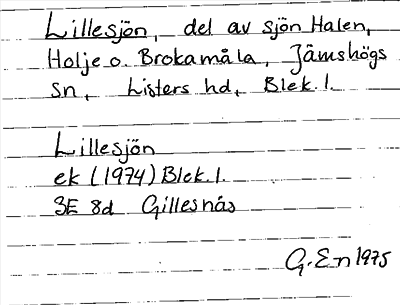 Lillesjön, del av sjön Halen,
Holje o. Brokamåla, Jämshögs
sn, Listers hd, Blek. l.
Lillesjön
ek (1974) Blek. l.
3E 8d Gillesnäs
G. En 1975